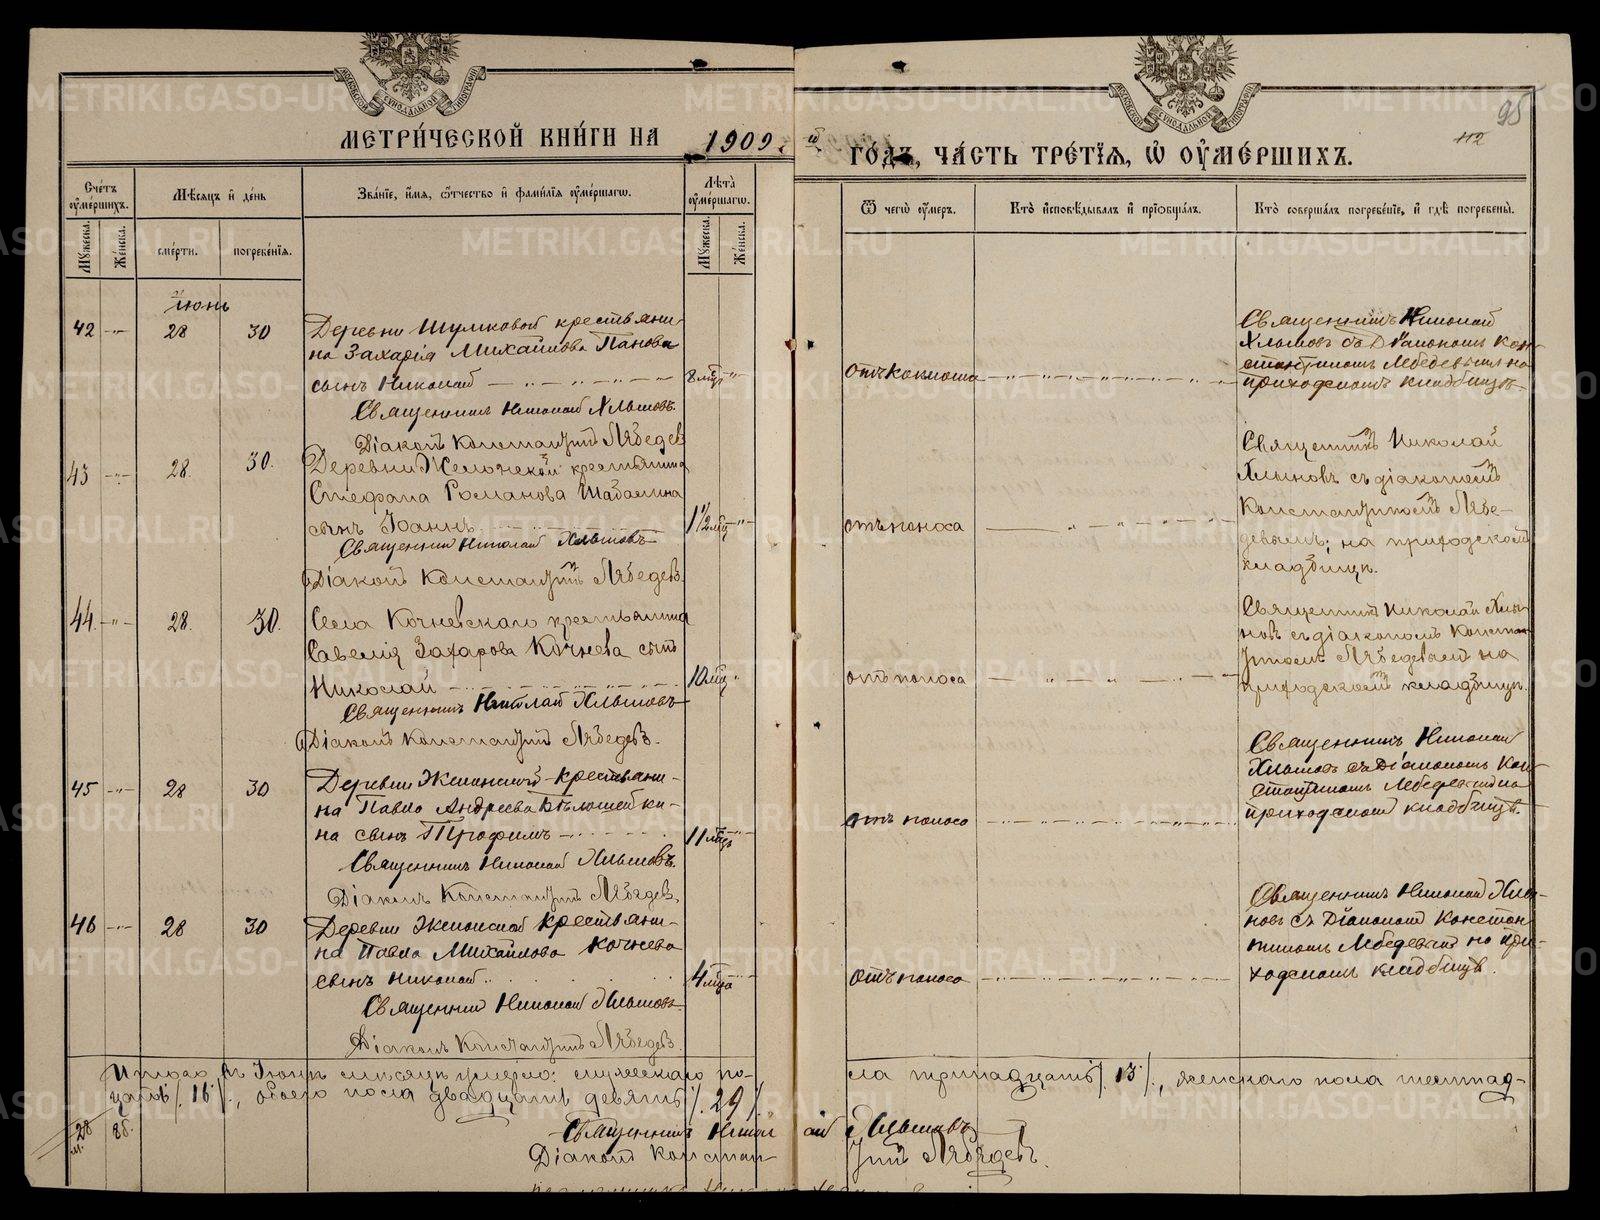 МЕТРИ́ЧЕСКОЙ КНИ́ГИ НА 1909 й
ГО́ДЪ, ЧА́СТЬ ТРЕ́ТІЯ, Ѽ ОУ҆МЕ́РШИХЪ.
95
112
Сче́тъ оу҆ме́ршихъ.
Мѣсяцъ и҆ де́нь
Зва́ніе, и҆́мя, ѻ҆́тчество и҆ фами́лія оу҆ме́ршагѡ.
Лѣта̀ оу҆ме́ршагѡ.
Ѿ чегѡ̀ оу҆́меръ.
Кто̀ и҆сповѣ́дывалъ и҆ прїѻбща́лъ.
Кто̀ соверша́лъ погребе́ніе, и҆ гдѣ̀ погребены̀.
Мꙋ́жеска.
Же́нска.
сме́рти.
погребе́нія.
Мꙋ́жеска.
Же́нска.
Іюнь
42 28 30
Деревни Шумковой крестьяни-
на Захарія Михайлова Панова
сынъ Николай 8 мѣс
Священникъ Николай Хлыновъ.
Діаконъ Константинъ Лебедев
от коклюша
Священникъ Николай
Хлыновъ съ Діакономъ Кон-
стантиномъ Лебедевымъ на
приходскомъ кладбищѣ
43 28 30.
Деревни Жслонской крестьянина
Стефана Романова Шабалина
сынъ Іоаннъ 1 1/2 мѣс
Священник Николай Хлыновъ
Діаконъ Константинъ Лебедевъ.
отъ поноса
Священникъ Николай
Хлыновъ съ діакономъ
Константиномъ Лебе-
девымъ; на приходском
кладбищѣ.
44. 28. 30.
Села Кочневскаго крестьянина
Савелія Захарова Кочнева сынъ
Николай 10 мѣс
Священникъ Николай Хлыновъ
Діаконъ Константинъ Лебедевъ.
отъ поноса
Священникъ Николай Хлы-
новъ съ діакономъ Конста-
нтиномъ Лебедевымъ на
приходскомъ кладбищѣ.
45 28 30
Крестьяни-
на Павла Андреева Бѣлошейки-
на сынъ Трофимъ 11 мѣс
Священникъ Николай Хлыновъ.
Діаконъ Константинъ Лебедев.
отъ поноса
Священникъ Николай
Хлыновъ съ Діакономъ Кон-
стантиномъ Лебедевымъ на
приходском кладбищѣ.
46 28 30
Крестьяни-
на Павла Михайлова Кочнева
сынъ Николай 4 мѣс
Священник Николай Хлыновъ
Діаконъ Константинъ Лебедев
отъ поноса
Священникъ Николай Хлы-
новъ съ Діакономъ Констан-
тиномъ Лебедевым на при-
ходскомъ кладбищѣ.
Итого въ Іюнѣ мѣсяцѣ умерло: мужескаго по-
ла тринадцать /. 13 /., женскаго пола шестнад-
цать /. 16 /., обоего пола двадцать девять /. 29 /.
Священникъ Николай Хлыновъ
Діаконъ Константинъ Лебедевъ.
METRIKI.GASO-URAL.RU